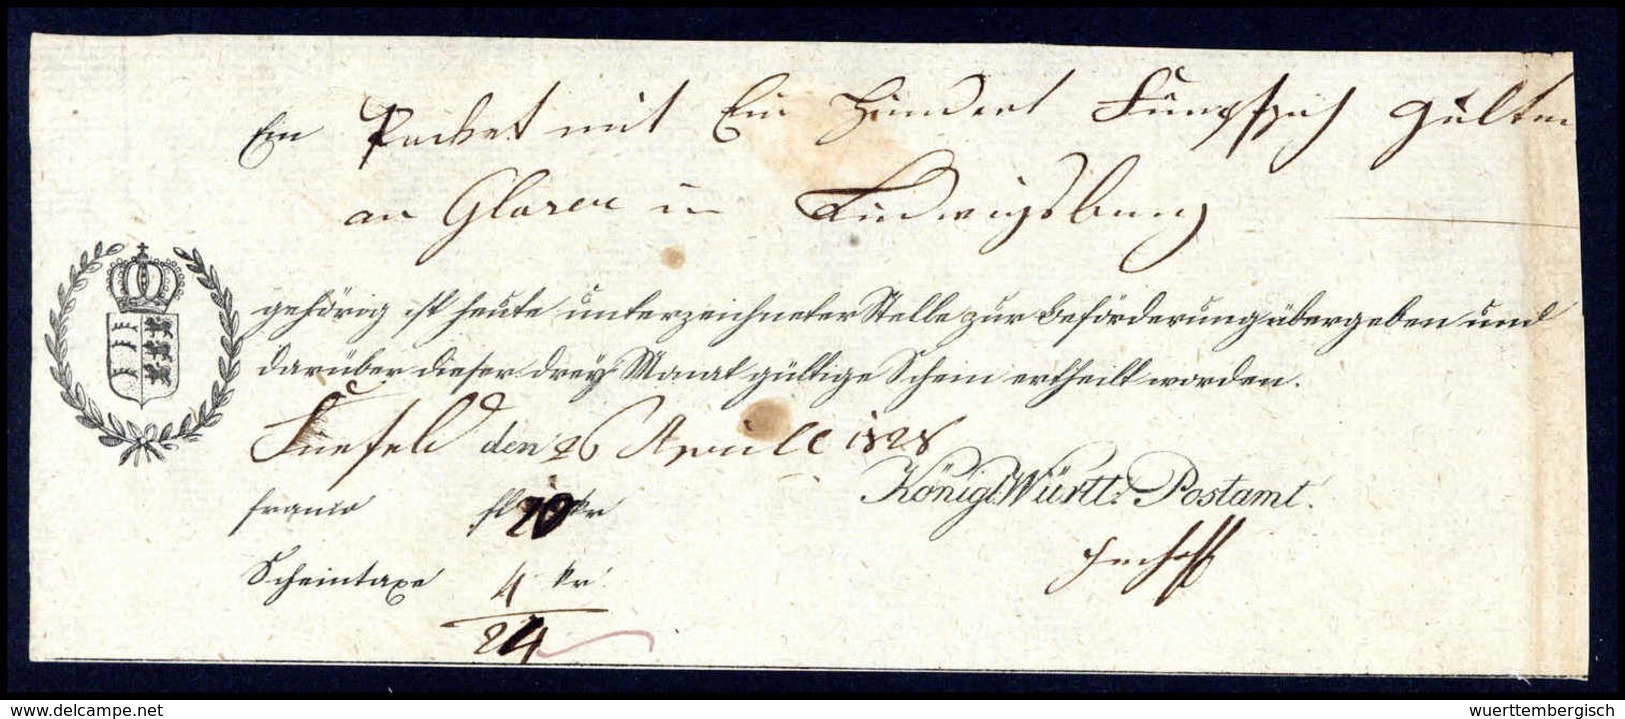 Ein Packet mit Ein Hundert Fünfzig Gulten
an Glaser in Ludwigsburg
gehörig ist heute unterzeichneter Stelle zur Beförderung übergeben und
darüber dieser drey Monat gültige Schein ertheilt worden.
den 26 April 1828
Königl. Württ. Postamt.
franco fl 20 kr
Imhoff
Scheintaxe 4 kr.
24
www.delcampe.net
wuerttembergisch